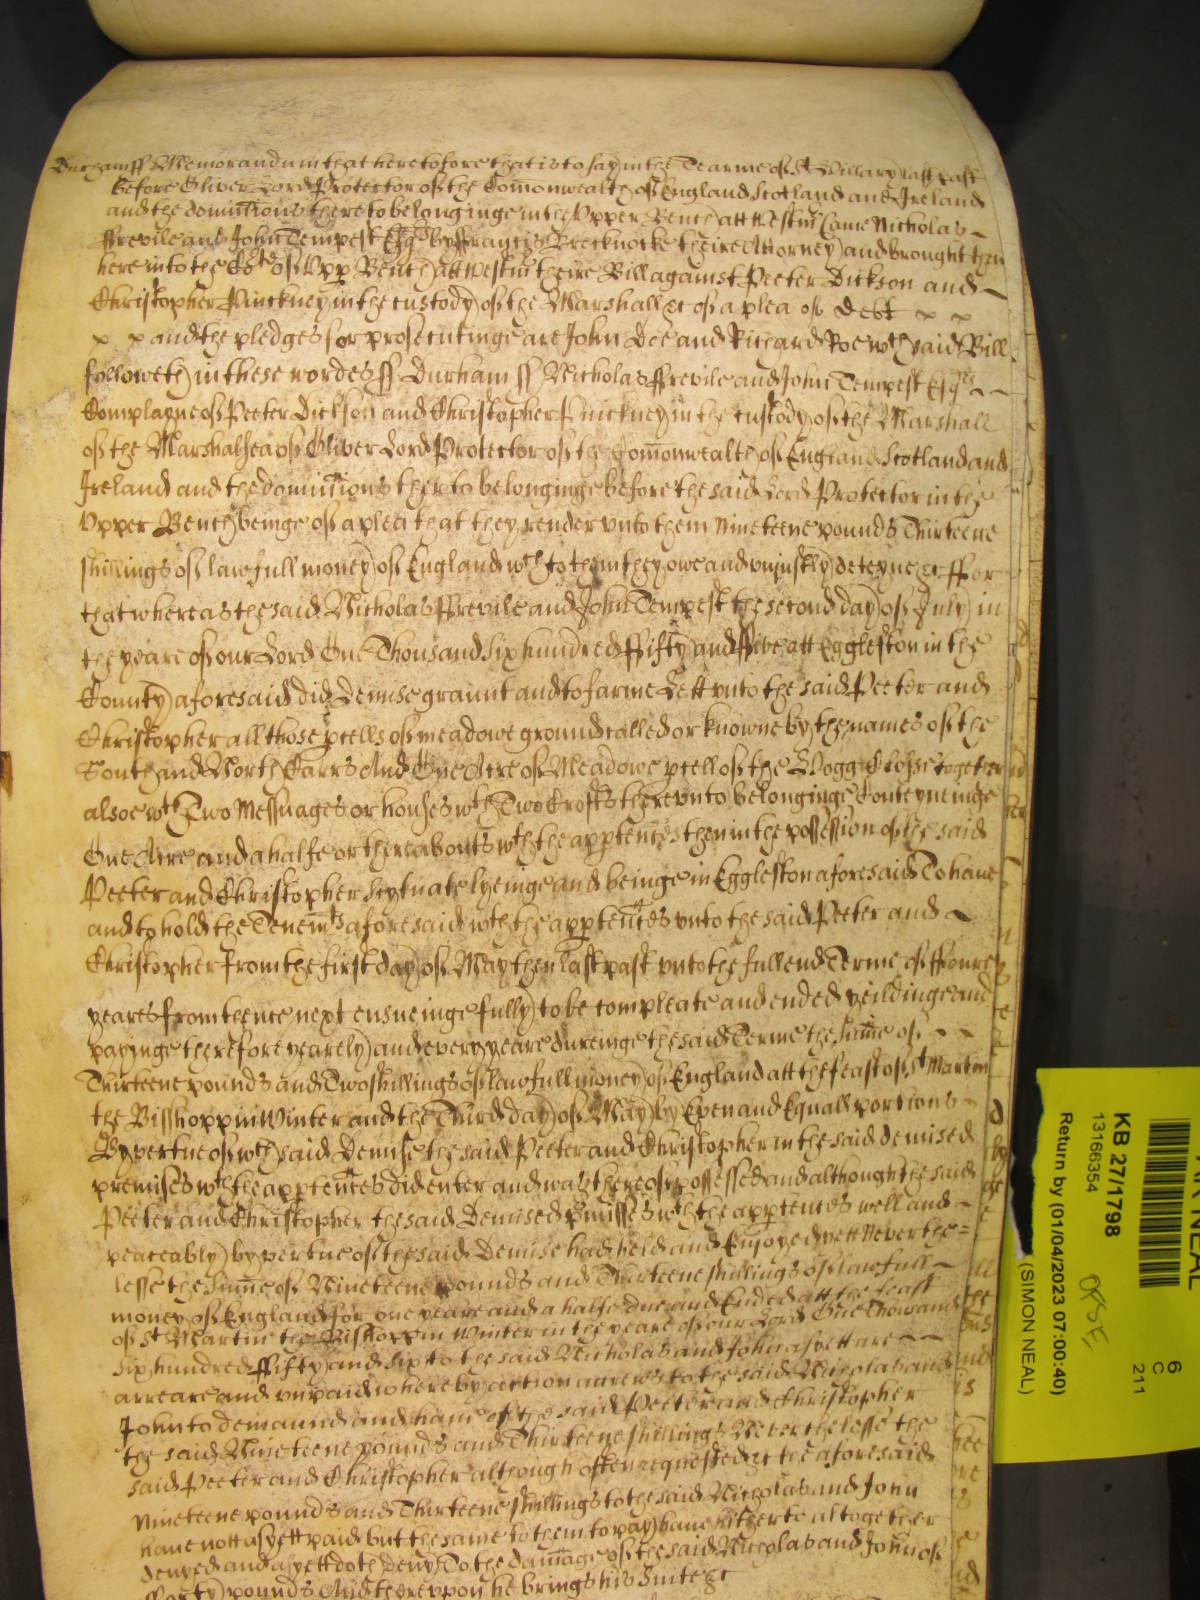 Durham ss Memorandum that heretofore that is to say in the Tearme of St Hillary last past
before Oliver Lord Protector of the Com̄onwealth of England Scotland and Ireland
and the dominions thereto belonginge in the Upper Bench att Westm̄ Came Nicholas
ffrevile and John Tempest Esqrs by ffrancis Brecknocke theire Attorney and brought then
here into the Crt of Upp Bench att Westm̄ theire Bill against Peeter Dickson and
Christopher Pinckney in the custody of the Marshall &c of a plea of Debt
and the pledges for prosecutinge are John Doe and Richard Roe wch said Bill
followeth in these wordes ss Durham ss Nicholas ffrevile and John Tempest Esqrs
Complayne of Peeter Dickson and Christopher Pinckney in the custody of the Marshall
of the Marshalsea of Oliver Lord Protector of the Com̄onwealth of England Scotland and
Ireland and the dominions thereto belonginge before the said Lord Protector in the
Upper Bench beinge of a plea that they render unto them Nineteene pounds Thirteene
shillings of lawfull money of England wch to them they owe and uniustly deteyne &c ffor
that whereas the said Nicholas ffrevile and John Tempest the second day of July in
the yeare of our Lord One Thousand Six hundred ffifty and ffive att Eggleston in the
County aforesaid did Demise graunt and to farme Lett unto the said Peeter and
Christopher all those pcells of meadowe ground called or knowne by the names of the
South and North Carrs And One Acre of Meadowe pcell of the Hogg Close together
alsoe wth Two Messuages or houses wth Two Crofts thereunto belonginge Conteyneinge
One Acre and a halfe or thereabouts wth the apptenc̄es then in the possession of the said
Peeter and Christopher Scytuate lyeinge and beinge in Eggleston aforesaid To have
and to hold the Tenem̄ts aforesaid wth the apptenc̄es unto the said Peeter and
Christopher from the first day of May then last past unto the full end Terme of ffoure
yeares from thence next ensueinge fully to be compleate and ended yeildinge and
payinge therefore yearely and every yeare dureinge the said Terme the sum̄e of
Thirteene pounds and Two shillings of lawfull money of England att the feast of St Martin
the Bisshopp in Winter and the Third day of May by Even and Equall portions
By vertue of wch said Demise the said Peeter and Christopher in the said demised
premises wth the apptenc̄es did enter and was thereof possessed and although the said
Peeter and Christopher the said Demised p̄misses wth the apptenc̄es well and
peaceably by vertue of the said Demise had held and Enjoyed yett Neverthe=
lesse the Sum̄e of Nineteene pounds and Thirteene shillings of lawfull
money of England for one yeare and a halfe due and Ended att the feast
of St Martin the Bishopp in Winter in the yeare of our Lord One Thowsand
Six hundred ffifty and six to the said Nicholas and John as yett are
arreare and unpaid whereby action accrews to the said Nicholas and
John to demaund and have of the said Peeter and Christopher
the said Nineteene pounds and Thirteene shillings Neverthelesse the
said Peeter and Christopher although often requested &c the aforesaid
Nineteene pounds and Thirteene shillings to the said Nicholas and John
have nott as yett paid but the same to them to pay have hitherto altogether
denyed and as yett doth deny To the dam̄age of the said Nicholas and John of
pounds And thereupon he brings his Suite &c
KB 27/1798
13166354
Return by (01/04/2023 07:00:40)
(SIMON NEAL)
6
C
211